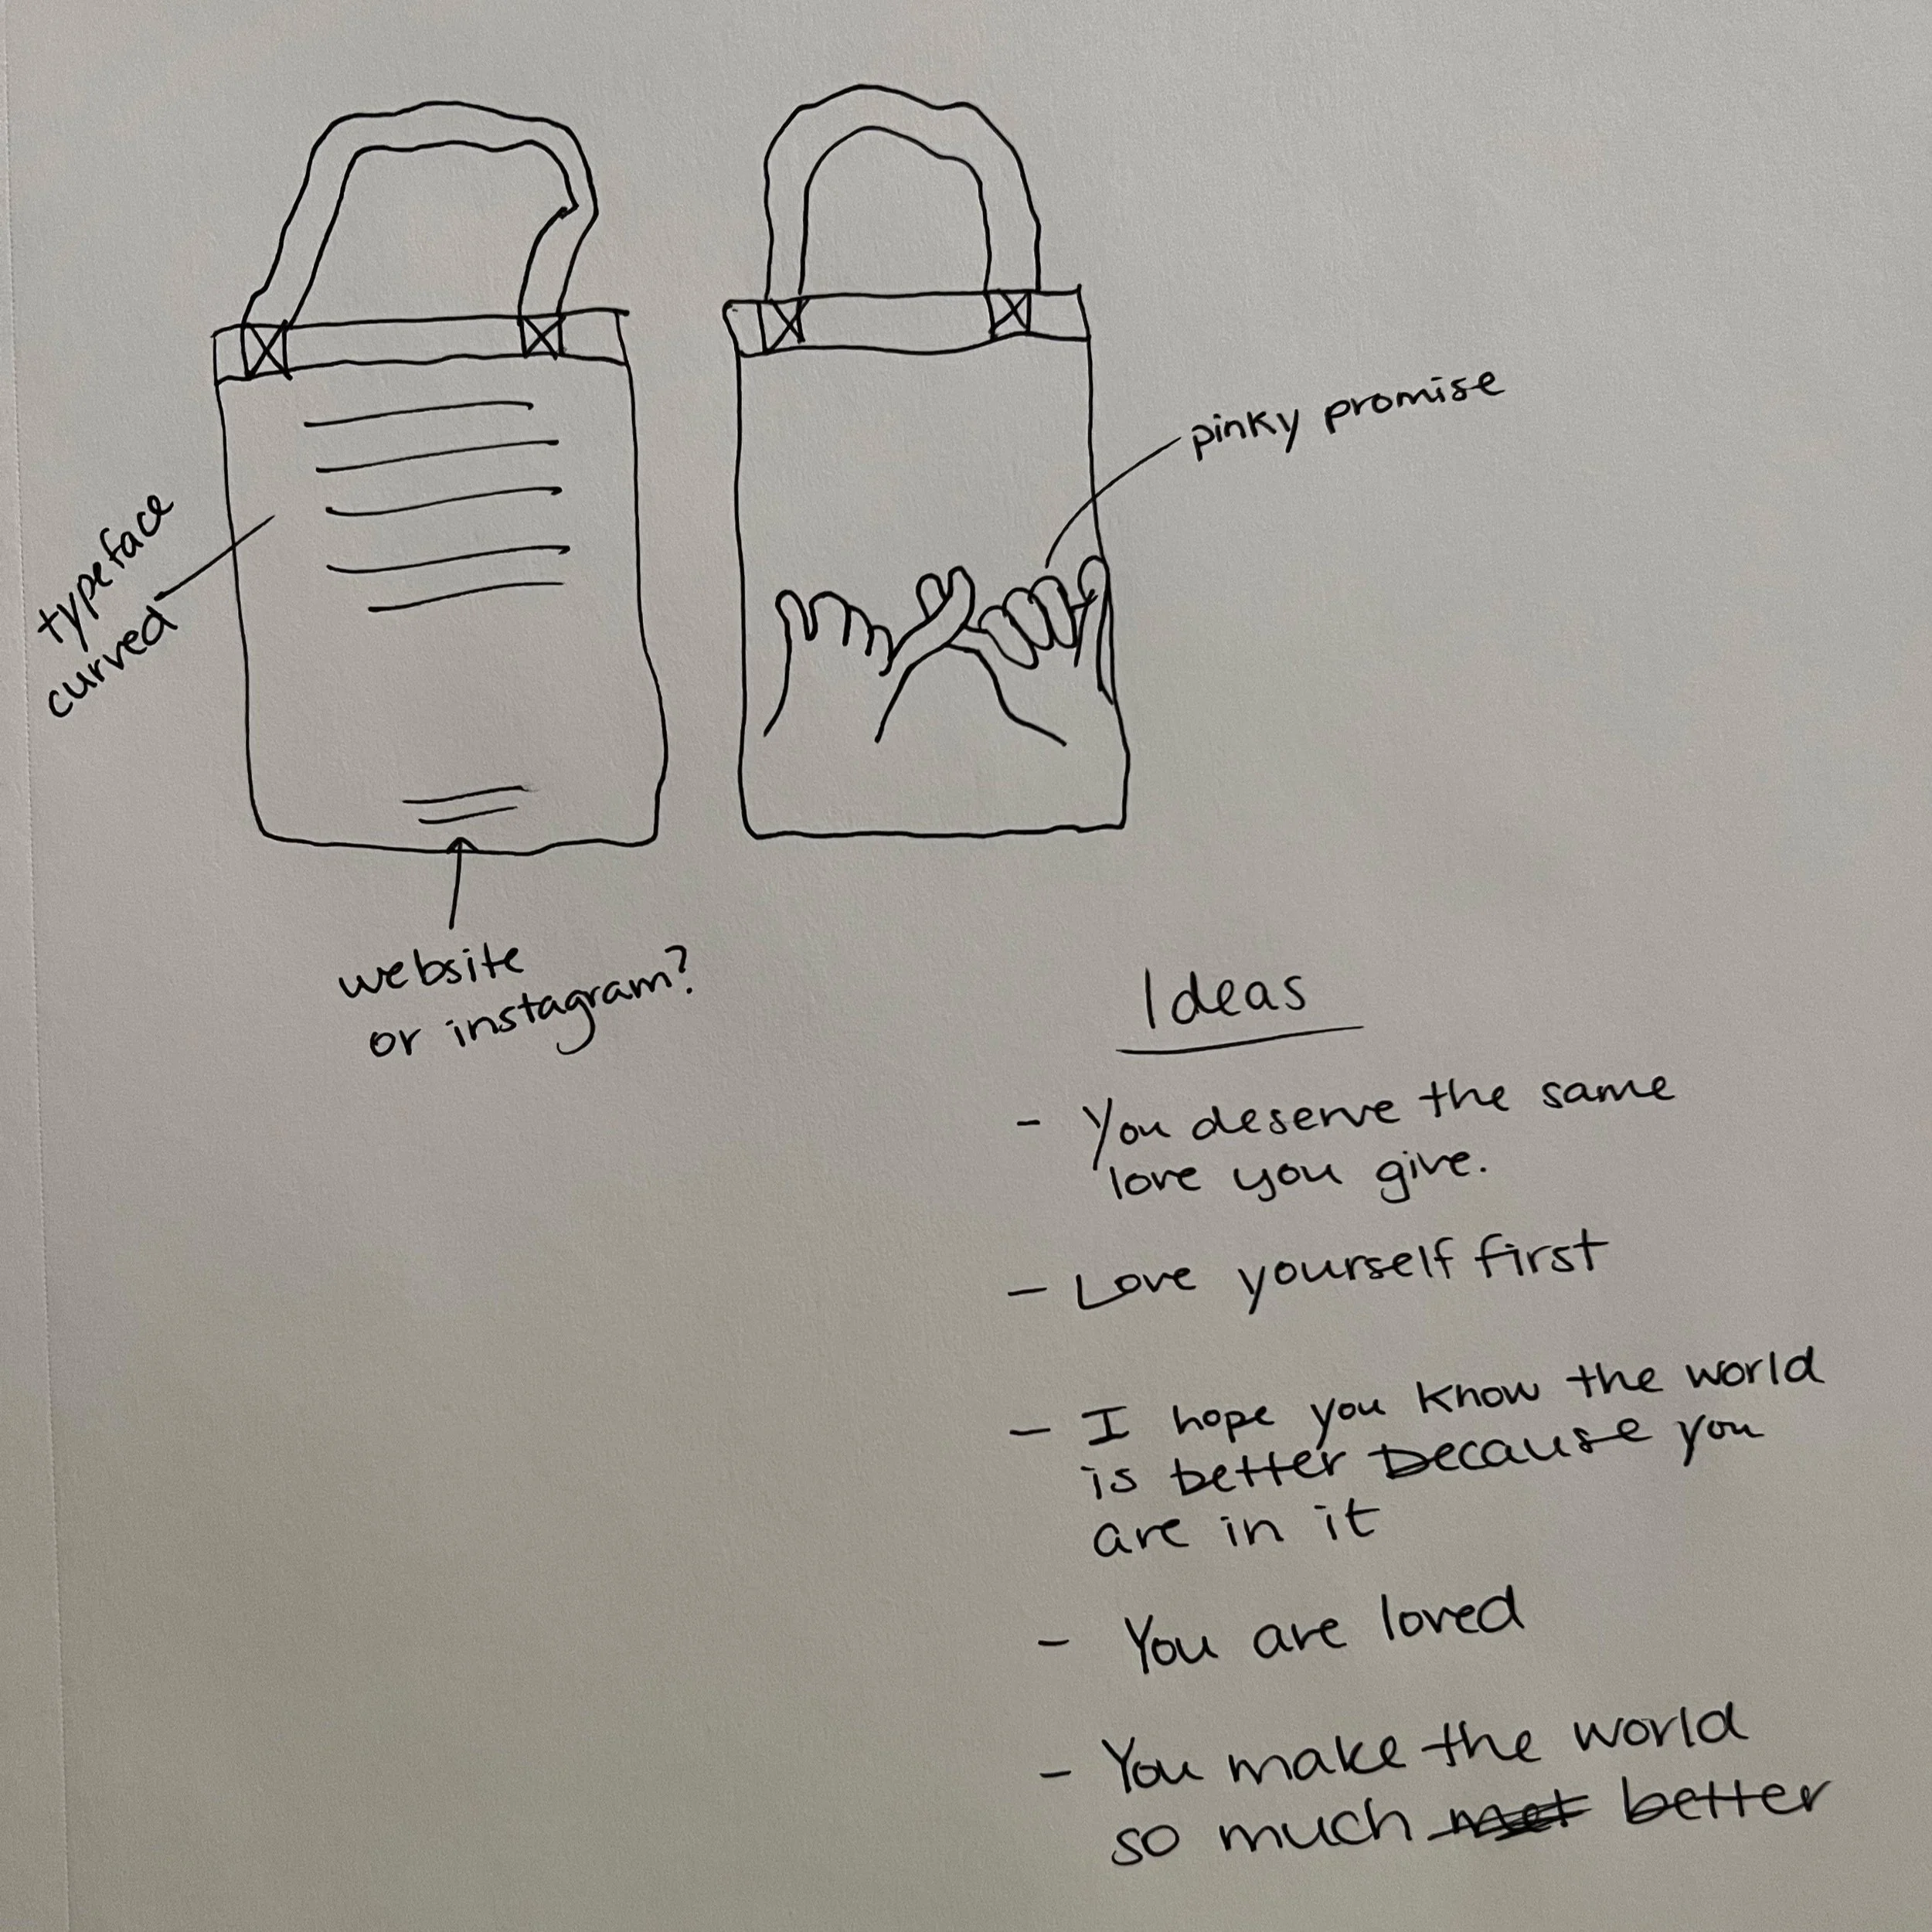 typeface
curved
pinky promise
website
or instagram?
Ideas
- You deserve the same
love you give.
- Love yourself first
- I hope you know the world
is better because you
are in it
- You are loved
- You make the world
so much better